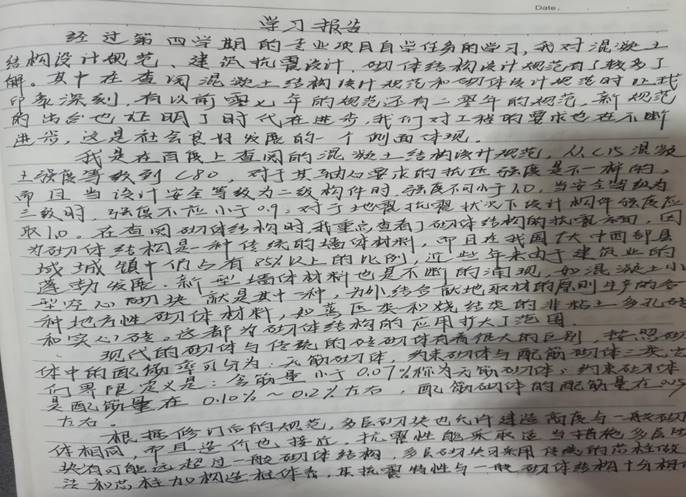 Date.
学习报告
经过第四学期的专业项目自学任务的学习，我对混凝土
结构设计规范、建筑抗震设计、砌体结构设计规范有了较多了
解。其中在查阅混凝土结构设计规范和砌体设计规范时让我
印象深刻，有以前零几年的规范还有二零年的规范，新规范
的出台也证明了时代在进步，我们对工程的要求也在不断
进步，这是社会良好发展的一个侧面体现。
我是在百度上查阅的混凝土结构设计规范，从C15混凝
土强度等级到C80，对于其轴心要求的抗压强度是不一样的，
而且当设计安全等级为二级构件时，强度不可小于1.0，当安全等级为
三级时，强度不应小于0.9，对于地震抗震状况下设计构件强度应
取1.0。在查阅砌体结构时我重点查看了砌体结构的抗震方面，因
为砌体结构是一种传统的墙体材料，而且在我国广大中西部县
域城镇中仍占有85%以上的比例，近些年来由于建筑业的
蓬勃发展，新型墙体材料也是不断的涌现，如混凝土小
型空心砌块就是其中一种，另外结合就地取材的原则生产的各
种地方性砌体材料，如蒸压类和烧结类的非粘土多孔砖
和实心砖。这都为砌体结构的应用扩大了范围。
现代的砌体与传统的砖砌体有着很大的区别，按照砌
体中的配筋率可分为：无筋砌体，约束砌体与配筋砌体三类，它
们界限定义是：含筋量小于0.07%称为无筋砌体；约束砌体
是配筋量在0.10%～0.2%左右，配筋砌体的配筋量在
左右。
根据修订后的规范，多层砌块也允许建造高度与一般砌
体相同，而且造价也接近，抗震性能采取适当措施多层砌
块有可能远超过一般砌体结构，多层砌块采用传统的芯柱做
法和芯柱加构造柱体系，其抗震特性与一般砌体结构十分相